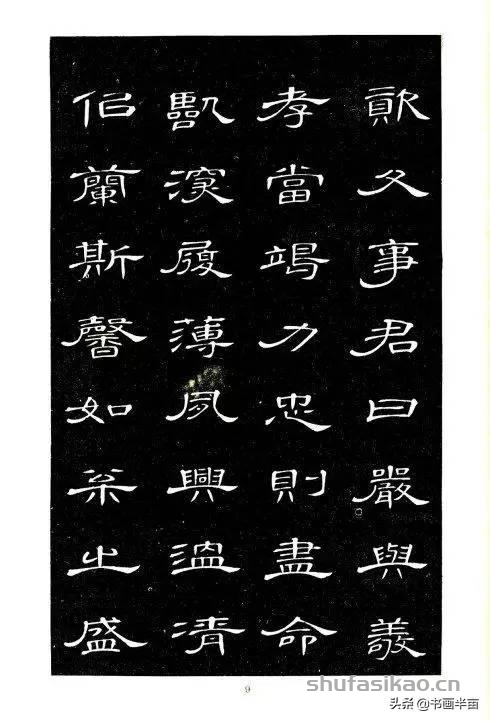 資父事君曰嚴與敬
孝當竭力忠則盡命
臨深履薄夙興溫清
似蘭斯馨如松之盛
9
shufasikao.cn
头条 @书画半亩